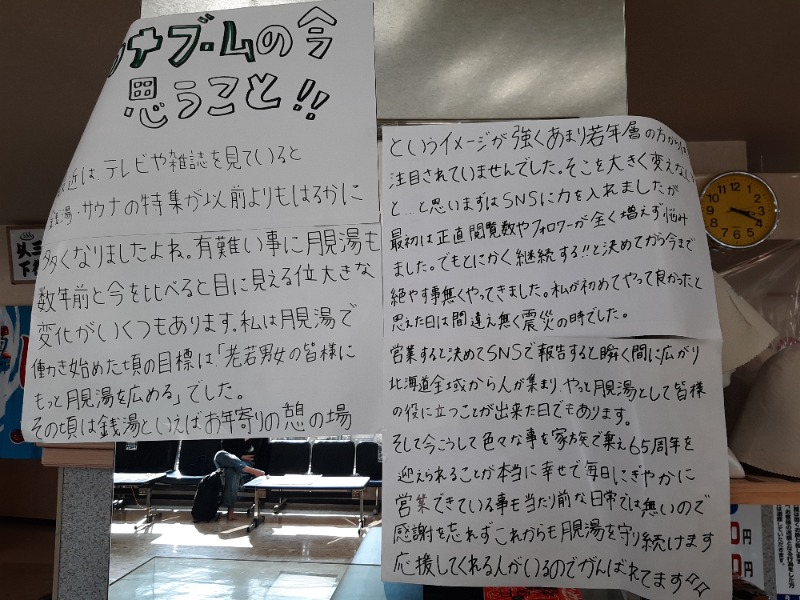 ウナブームの今
思うこと!!
最近は、テレビや雑誌を見ていると
銭湯・サウナの特集が以前よりもはるかに
多くなりましたよね。有難い事に月見湯も
数年前と今を比べると目に見える位大きな
変化がいくつもあります。私は月見湯で
働き始めた頃の目標は、「老若男女の皆様に
もっと月見湯を広める」でした。
その頃は銭湯といえばお年寄りの憩の場
というイメージが強くあまり若年層の方から
注目されていませんでした。そこを大きく変えないと
と…と思いまずはSNSに力を入れましたが
最初は正直閲覧数やフォロワーが全く増えず悩み
ました。でもとにかく継続する!!と決めてから今まで
絶やす事無くやってきました。私が初めてやって良かったと
思えた日は間違え無く震災の時でした。
営業すると決めてSNSで報告すると瞬く間に広がり
北海道全域から人が集まり、やっと月見湯として皆様
の役に立つことが出来た日でもあります。
そして今こうして色々な事を家族で乗え65周年を
迎えられることが本当に幸せで毎日にぎやかに
営業できている事も当たり前な日常では無いので
感謝を忘れずこれからも月見湯を守り続けます
応援してくれる人がいるのでがんばれてます☆☆
円
円